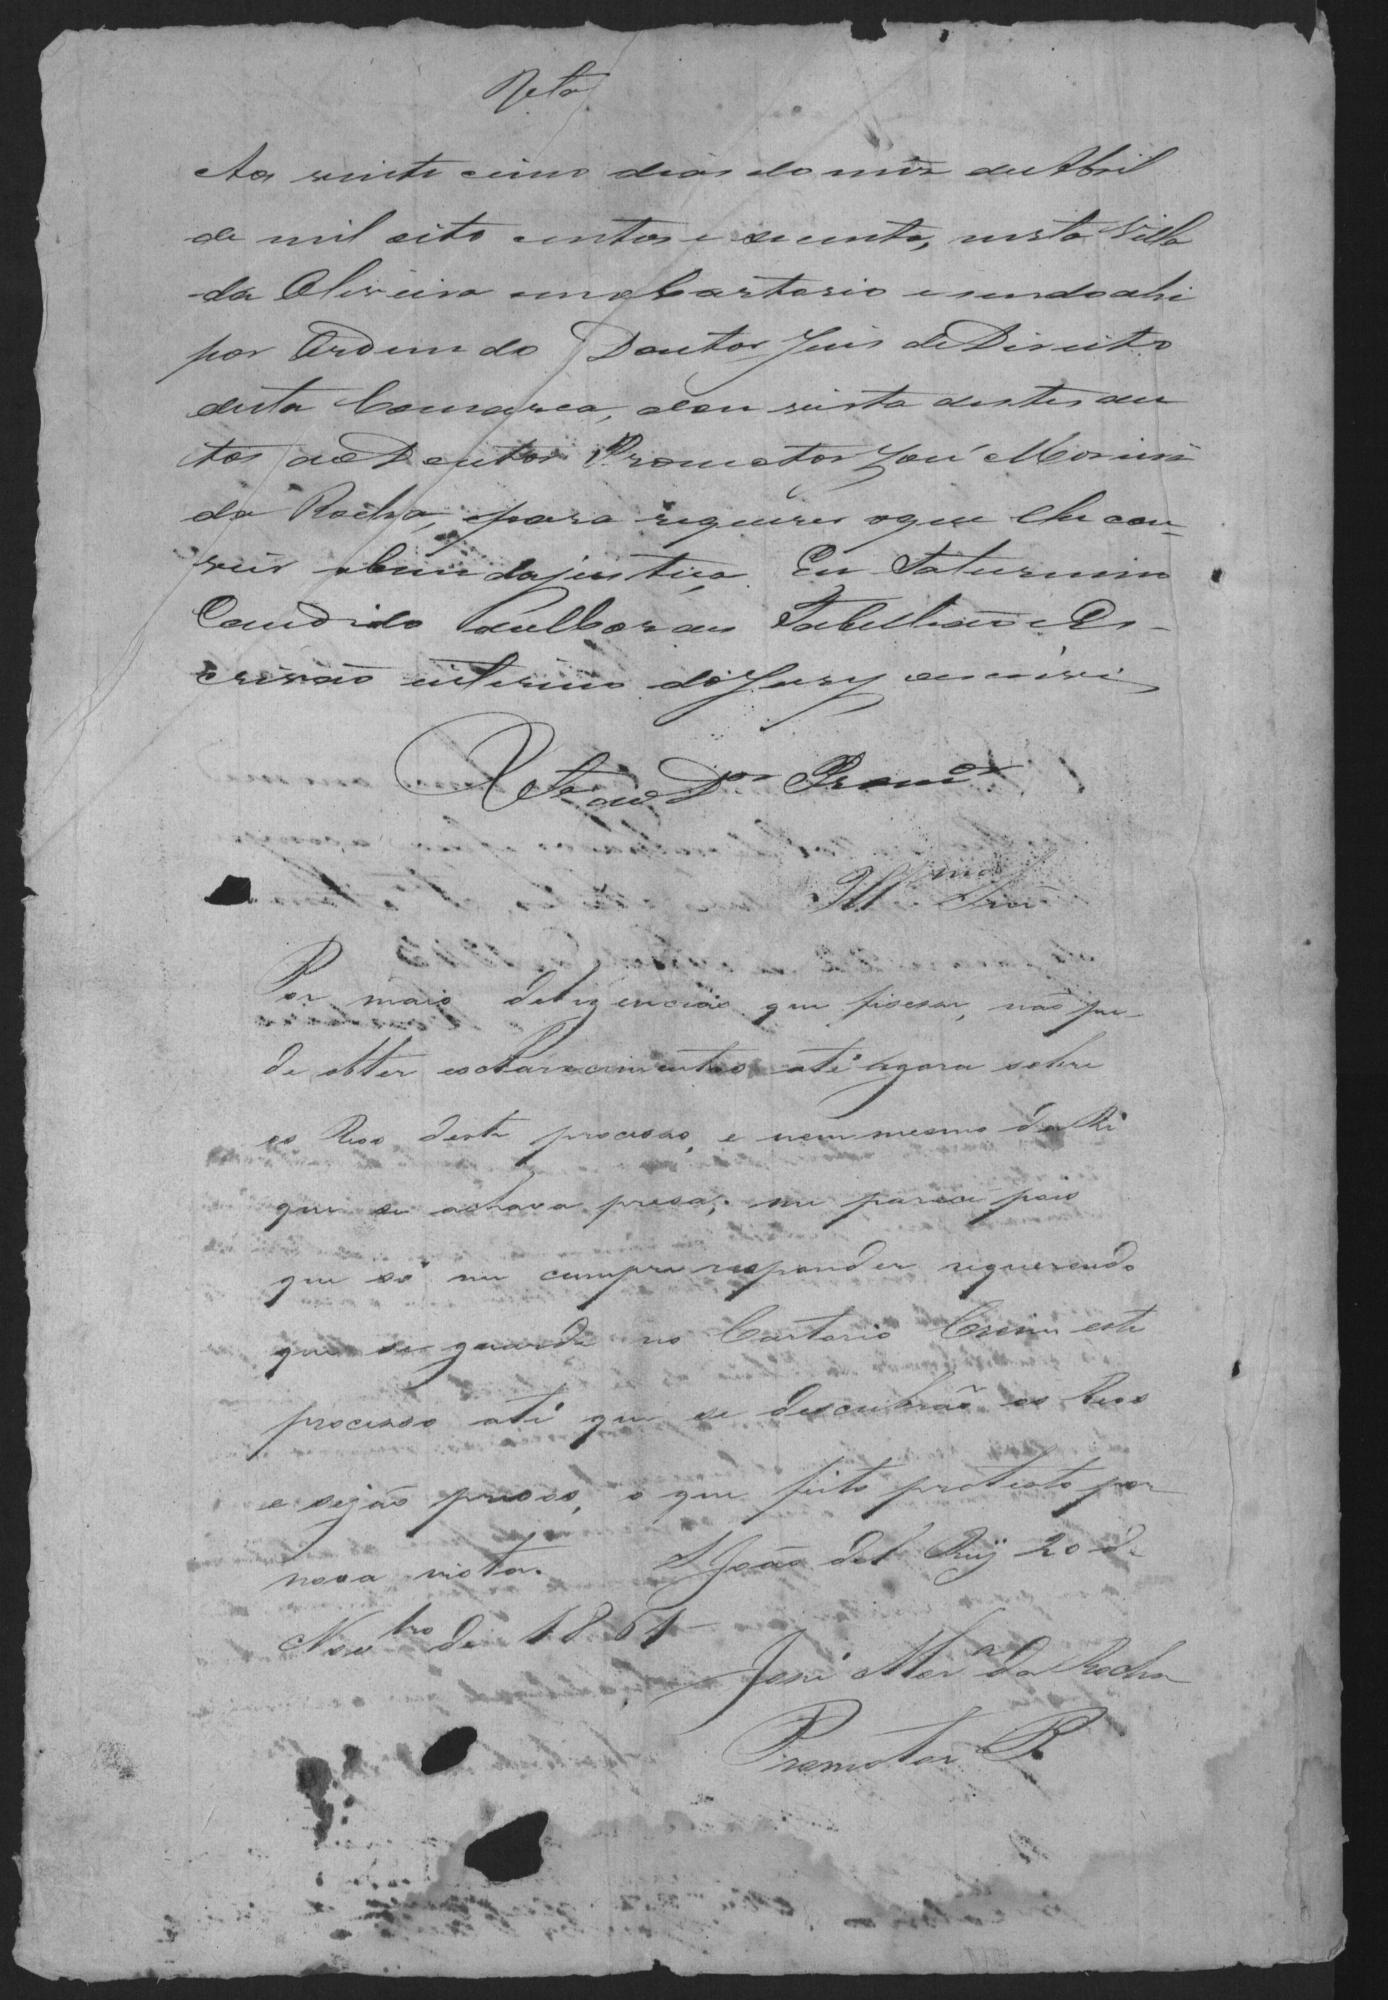 Vista
Aos vinte cinco dias do mez de Abril
de mil oito centos e secenta, nesta Villa
da Oliveira em o Cartorio e sendo ahi
por Ordem do Doutor Juis de Direito
desta Comarca, dou vista destes au
tos ao Doutor Promotor José Moreira
da Rocha, para requerer o que lhe con-
vier a bem da justiça. Eu Saturnino
Candido Tabellião e Es-
crivão interino do Jury escrivi
Vta ao Dor Promor
Illmo Snr
Por mais deligencias que fisesse, não pu-
de obter esclarecimentos até agora sobre
os Reos deste processo, e nem mesmo da Ré
que se achava presa; me parece pois
que só me cumpre responder requerendo
que se guarde no Cartorio Crime este
processo até que se descubrão os Reos
e sejão presos, o que feito protesto por
nova vista. S João del Rey 20 de
Novbro de 1861
José Mora da Rocha
Promotor P.